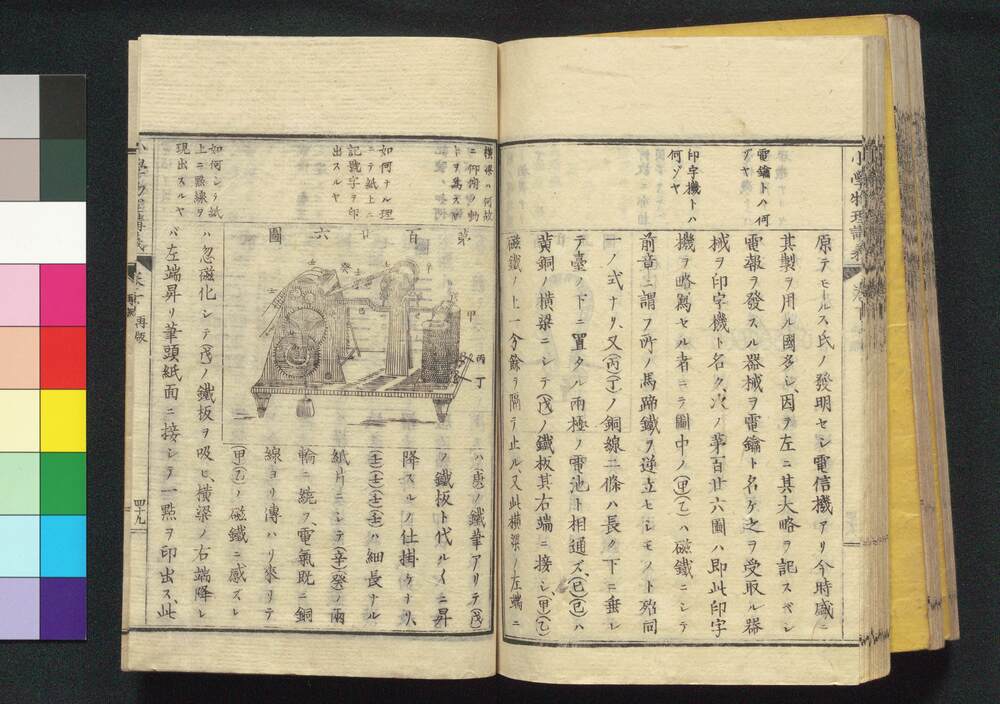 電鑰トハ何
ゾヤ
印字機トハ
何ゾヤ
原テモールス氏ノ發明セシ電信機アリ今時盛ニ
其製ヲ用ル國多シ、因ヲ左ニ其大略ヲ記スベシ
電報ヲ發スル器械ヲ電鑰ト名ケ之ヲ受取ル器
械ヲ印字機ト名ク、次ノ第百廿六圖ハ即此印字
機ヲ略寫セル者ニテ圖中ノ(甲)(乙)ハ磁鐵ニシテ
前章ニ謂フ所ノ馬蹄鐵ヲ逆立セシモノト殆同
一ノ式ナリ、又(丙)(丁)ノ銅線二條ハ長ク下ニ垂レ
テ臺ノ下ニ置タル兩極ノ電池ト相通ズ、(己)(己)ハ
黄銅ノ横梁ニシテ(戊)ノ鐵板其右端ニ接シ、(甲)(乙)
磁鐵ノ上一分餘ヲ隔テ止ル、又此横梁ノ左端ニ
横梁ハ何故
ニ仰俯ヲ動
ヲ爲スヤ
如何ナル理
ニテ紙上ニ
記號字ヲ印
出スルヤ
如何シテ紙
上ニ點線ヲ
現出スルヤ
第百廿六圖
甲
丙
丁
ハ庚ノ鐵筆アリテ(戊)
ノ鐵板ト代ル〱ニ昇
降スルノ仕掛ケナリ、
(壬)(壬)(壬)(壬)ハ細長ナル
紙片ニシテ(辛)(癸)ノ兩
輪ニ繞フ、電氣既ニ銅
線ヨリ傳ハリ來リテ
(甲)(乙)ノ磁鐵ニ感ズレ
ハ忽磁化シテ(戊)ノ鐵板ヲ吸ヒ、横梁ノ右端降レ
バ左端昇リ筆頭紙面ニ接シテ一點ヲ印出ス、此
再版
四十九